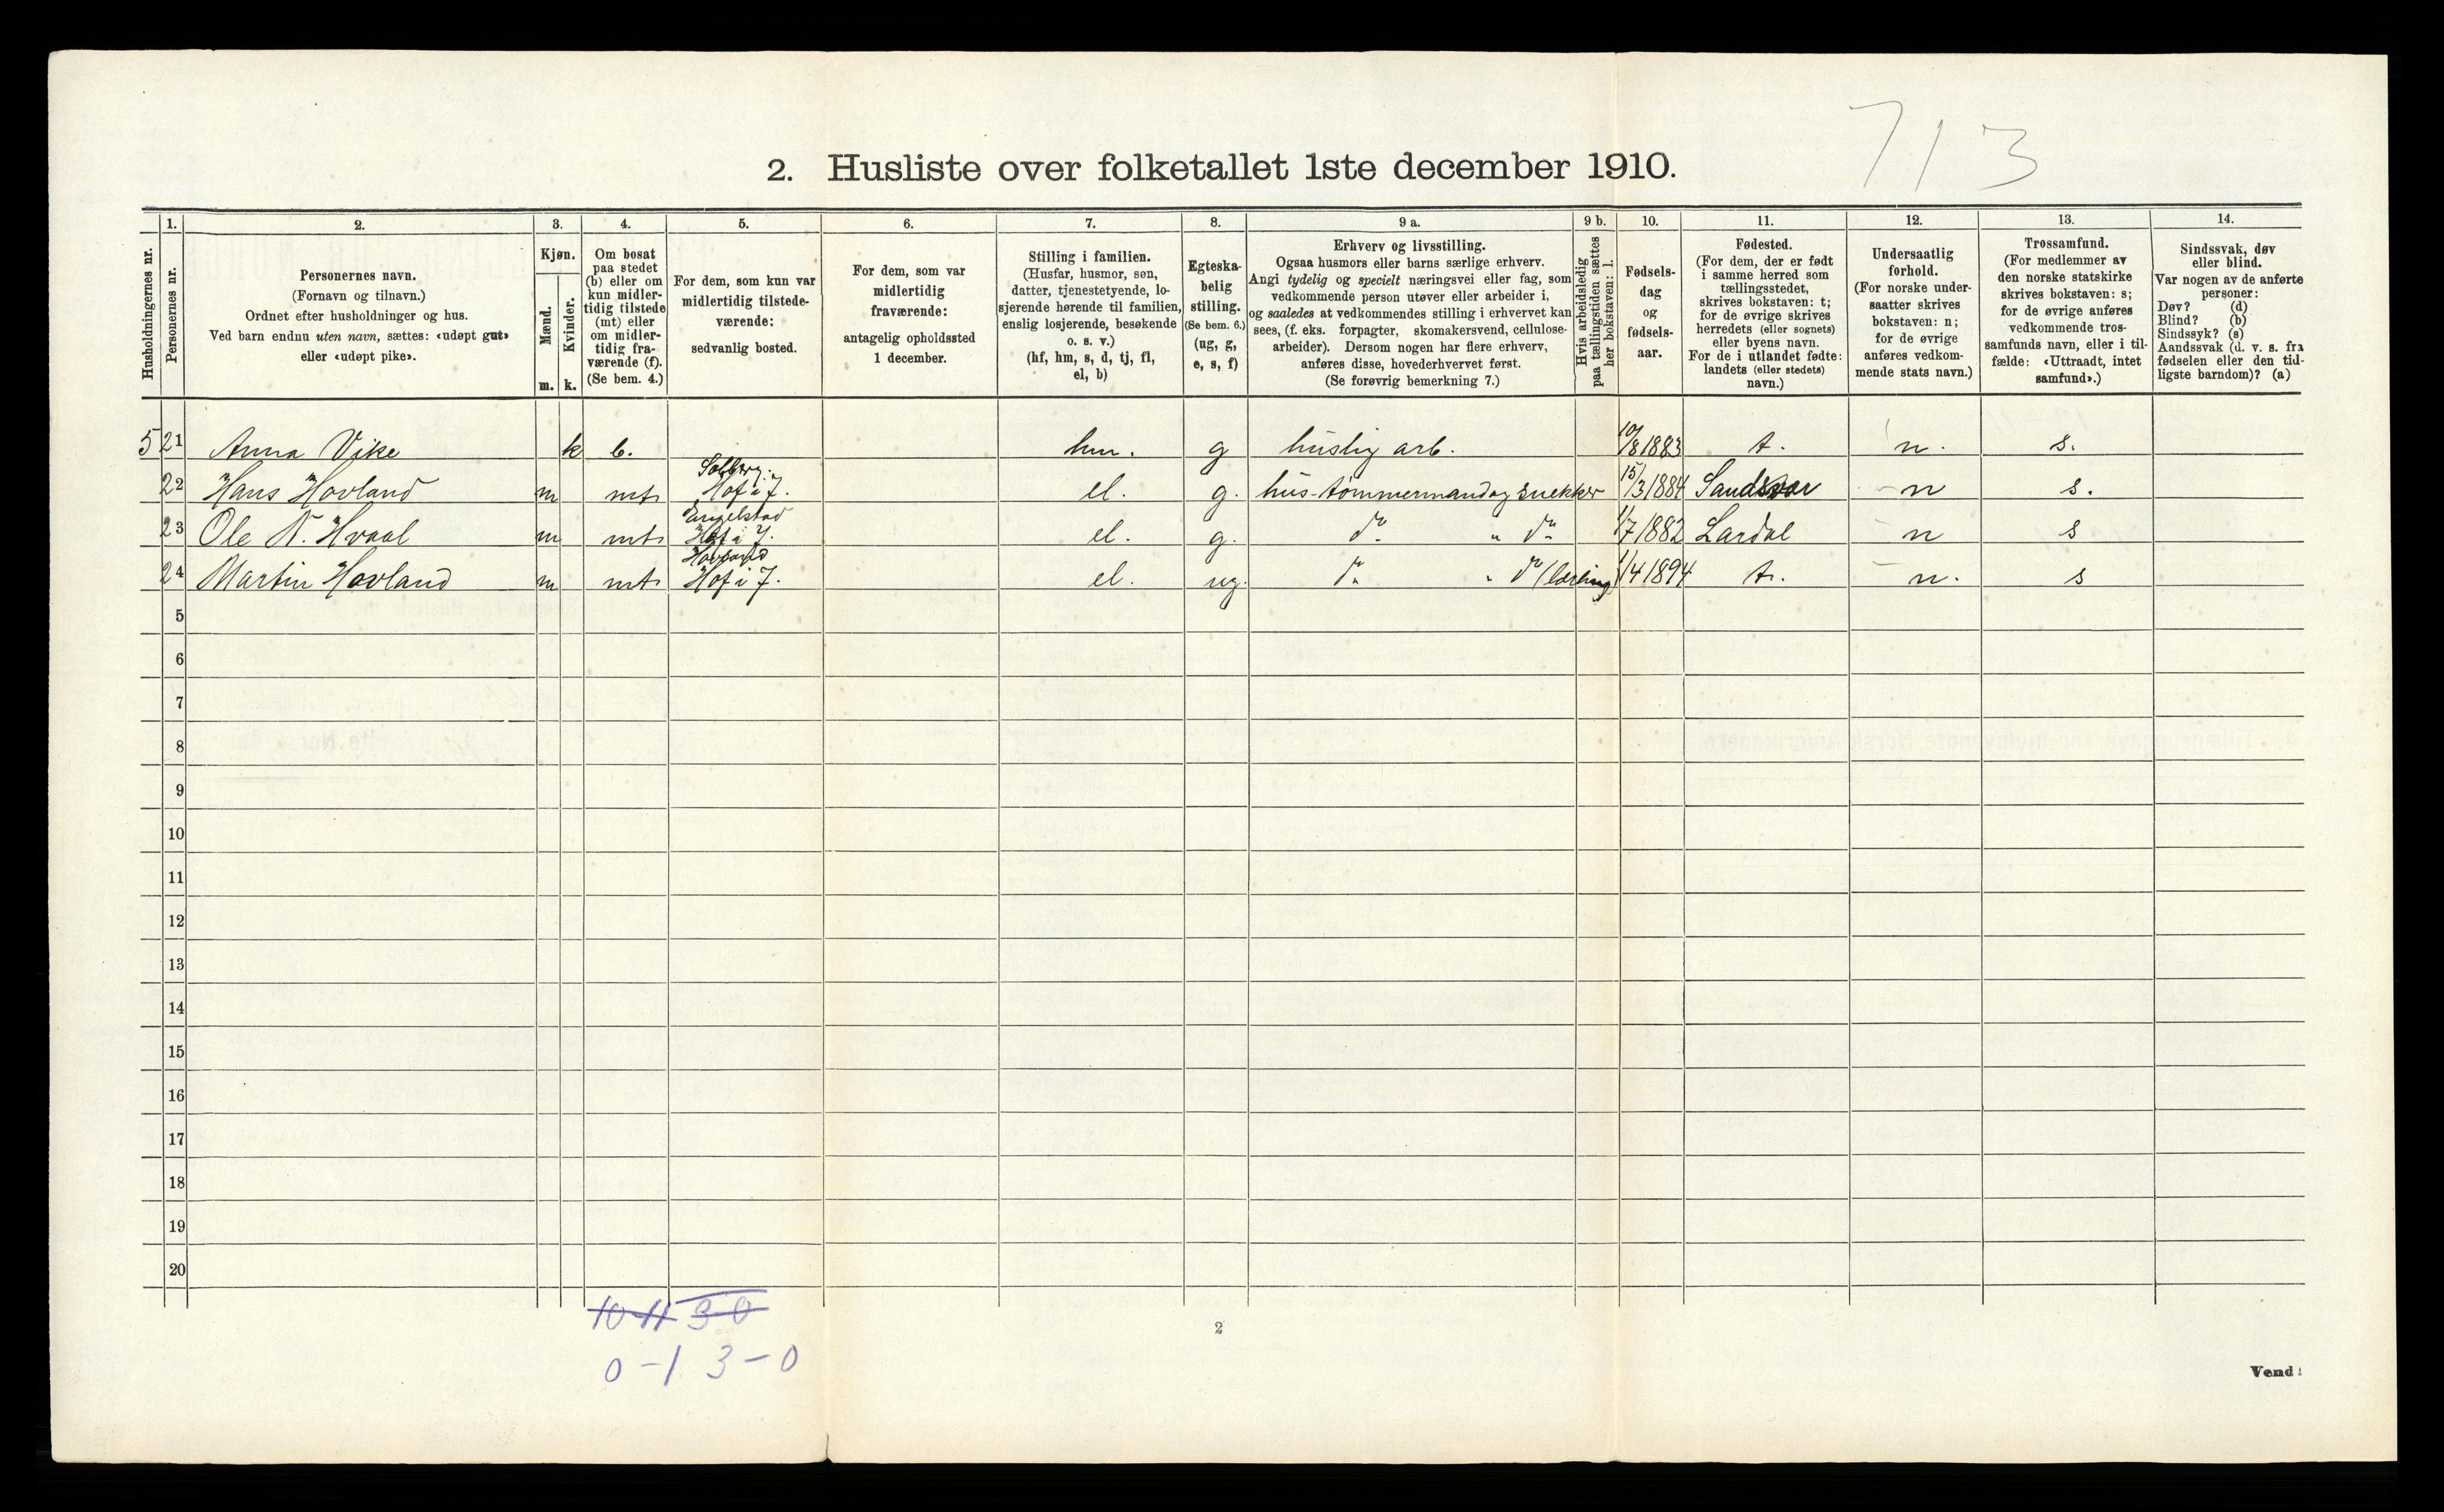 713
2. Husliste over folketallet 1ste december 1910.
Husholdningernes nr.
1.
Personernes nr.
2.
Personernes navn.
(Fornavn og tilnavn.)
Ordnet efter husholdninger og hus.
Ved barn endnu uten navn, sættes: «udøpt gut»
eller «udøpt pike».
3.
Kjøn.
Mænd.
m.
Kvinder.
k.
4.
Om bosat
paa stedet
(b) eller om
kun midler-
tidig tilstede
(mt) eller
om midler-
tidig fra-
værende (f).
(Se bem. 4.)
5.
For dem, som kun var
midlertidig tilstede-
værende:
sedvanlig bosted.
6.
For dem, som var
midlertidig
fraværende:
antagelig opholdssted
1 december.
7.
Stilling i familien.
(Husfar, husmor, søn,
datter, tjenestetyende, lo-
sjerende hørende til familien,
enslig losjerende, besøkende
o. s. v.)
(hf, hm, s, d, tj, fl,
el, b)
8.
Egteska-
belig
stilling.
(Se bem. 6.)
(ug, g,
e, s, f)
9 a.
Erhverv og livsstilling.
Ogsaa husmors eller barns særlige erhverv.
Angi tydelig og specielt næringsvei eller fag, som
vedkommende person utøver eller arbeider i,
og saaledes at vedkommendes stilling i erhvervet kan
sees, (f. eks. forpagter, skomakersvend, cellulose-
arbeider). Dersom nogen har flere erhverv,
anføres disse, hovederhvervet først.
(Se forøvrig bemerkning 7.)
9 b.
Hvis arbeidsledig
paa tællingstiden sættes
her bokstaven: l.
10.
Fødsels-
dag
og
fødsels-
aar.
11.
Fødested.
(For dem, der er født
i samme herred som
tællingsstedet,
skrives bokstaven: t;
for de øvrige skrives
herredets (eller sognets)
eller byens navn.
For de i utlandet fødte:
landets (eller stedets)
navn.)
12.
Undersaatlig
forhold.
(For norske under-
saatter skrives
bokstaven: n;
for de øvrige
anføres vedkom-
mende stats navn.)
13.
Trossamfund.
(For medlemmer av
den norske statskirke
skrives bokstaven: s;
for de øvrige anføres
vedkommende tros-
samfunds navn, eller i til-
fælde: «Uttraadt, intet
samfund».)
14.
Sindssvak, døv
eller blind.
Var nogen av de anførte
personer:
Døv? (d)
Blind? (b)
Sindssyk? (s)
Aandssvak (d. v. s. fra
fødselen eller den tid-
ligste barndom)? (a)
5 21 Anna Vike k b. hm. g huslig arb. 10/8 1883 t. n. s.
Solberg.
22 Hans Hovland m mt Hof i J. el. g. hus-tømmermand og snekker 15/3 1884 Sandsvær n s.
Engelstad
23 Ole N. Hvaal m mt Hof i J. el. g. do " do 1/7 1882 Lardal n s
Hovland
24 Martin Hovland m mt Hof i J. el. ug. do " do (lærling) 1/4 1894 t. n. s
5
6
7
8
9
10
11
12
13
14
15
16
17
18
19
20
0-1 3-0
2
Vend!